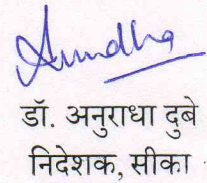 Anudha
डॉ. अनुराधा दुबे
निदेशक, सीका